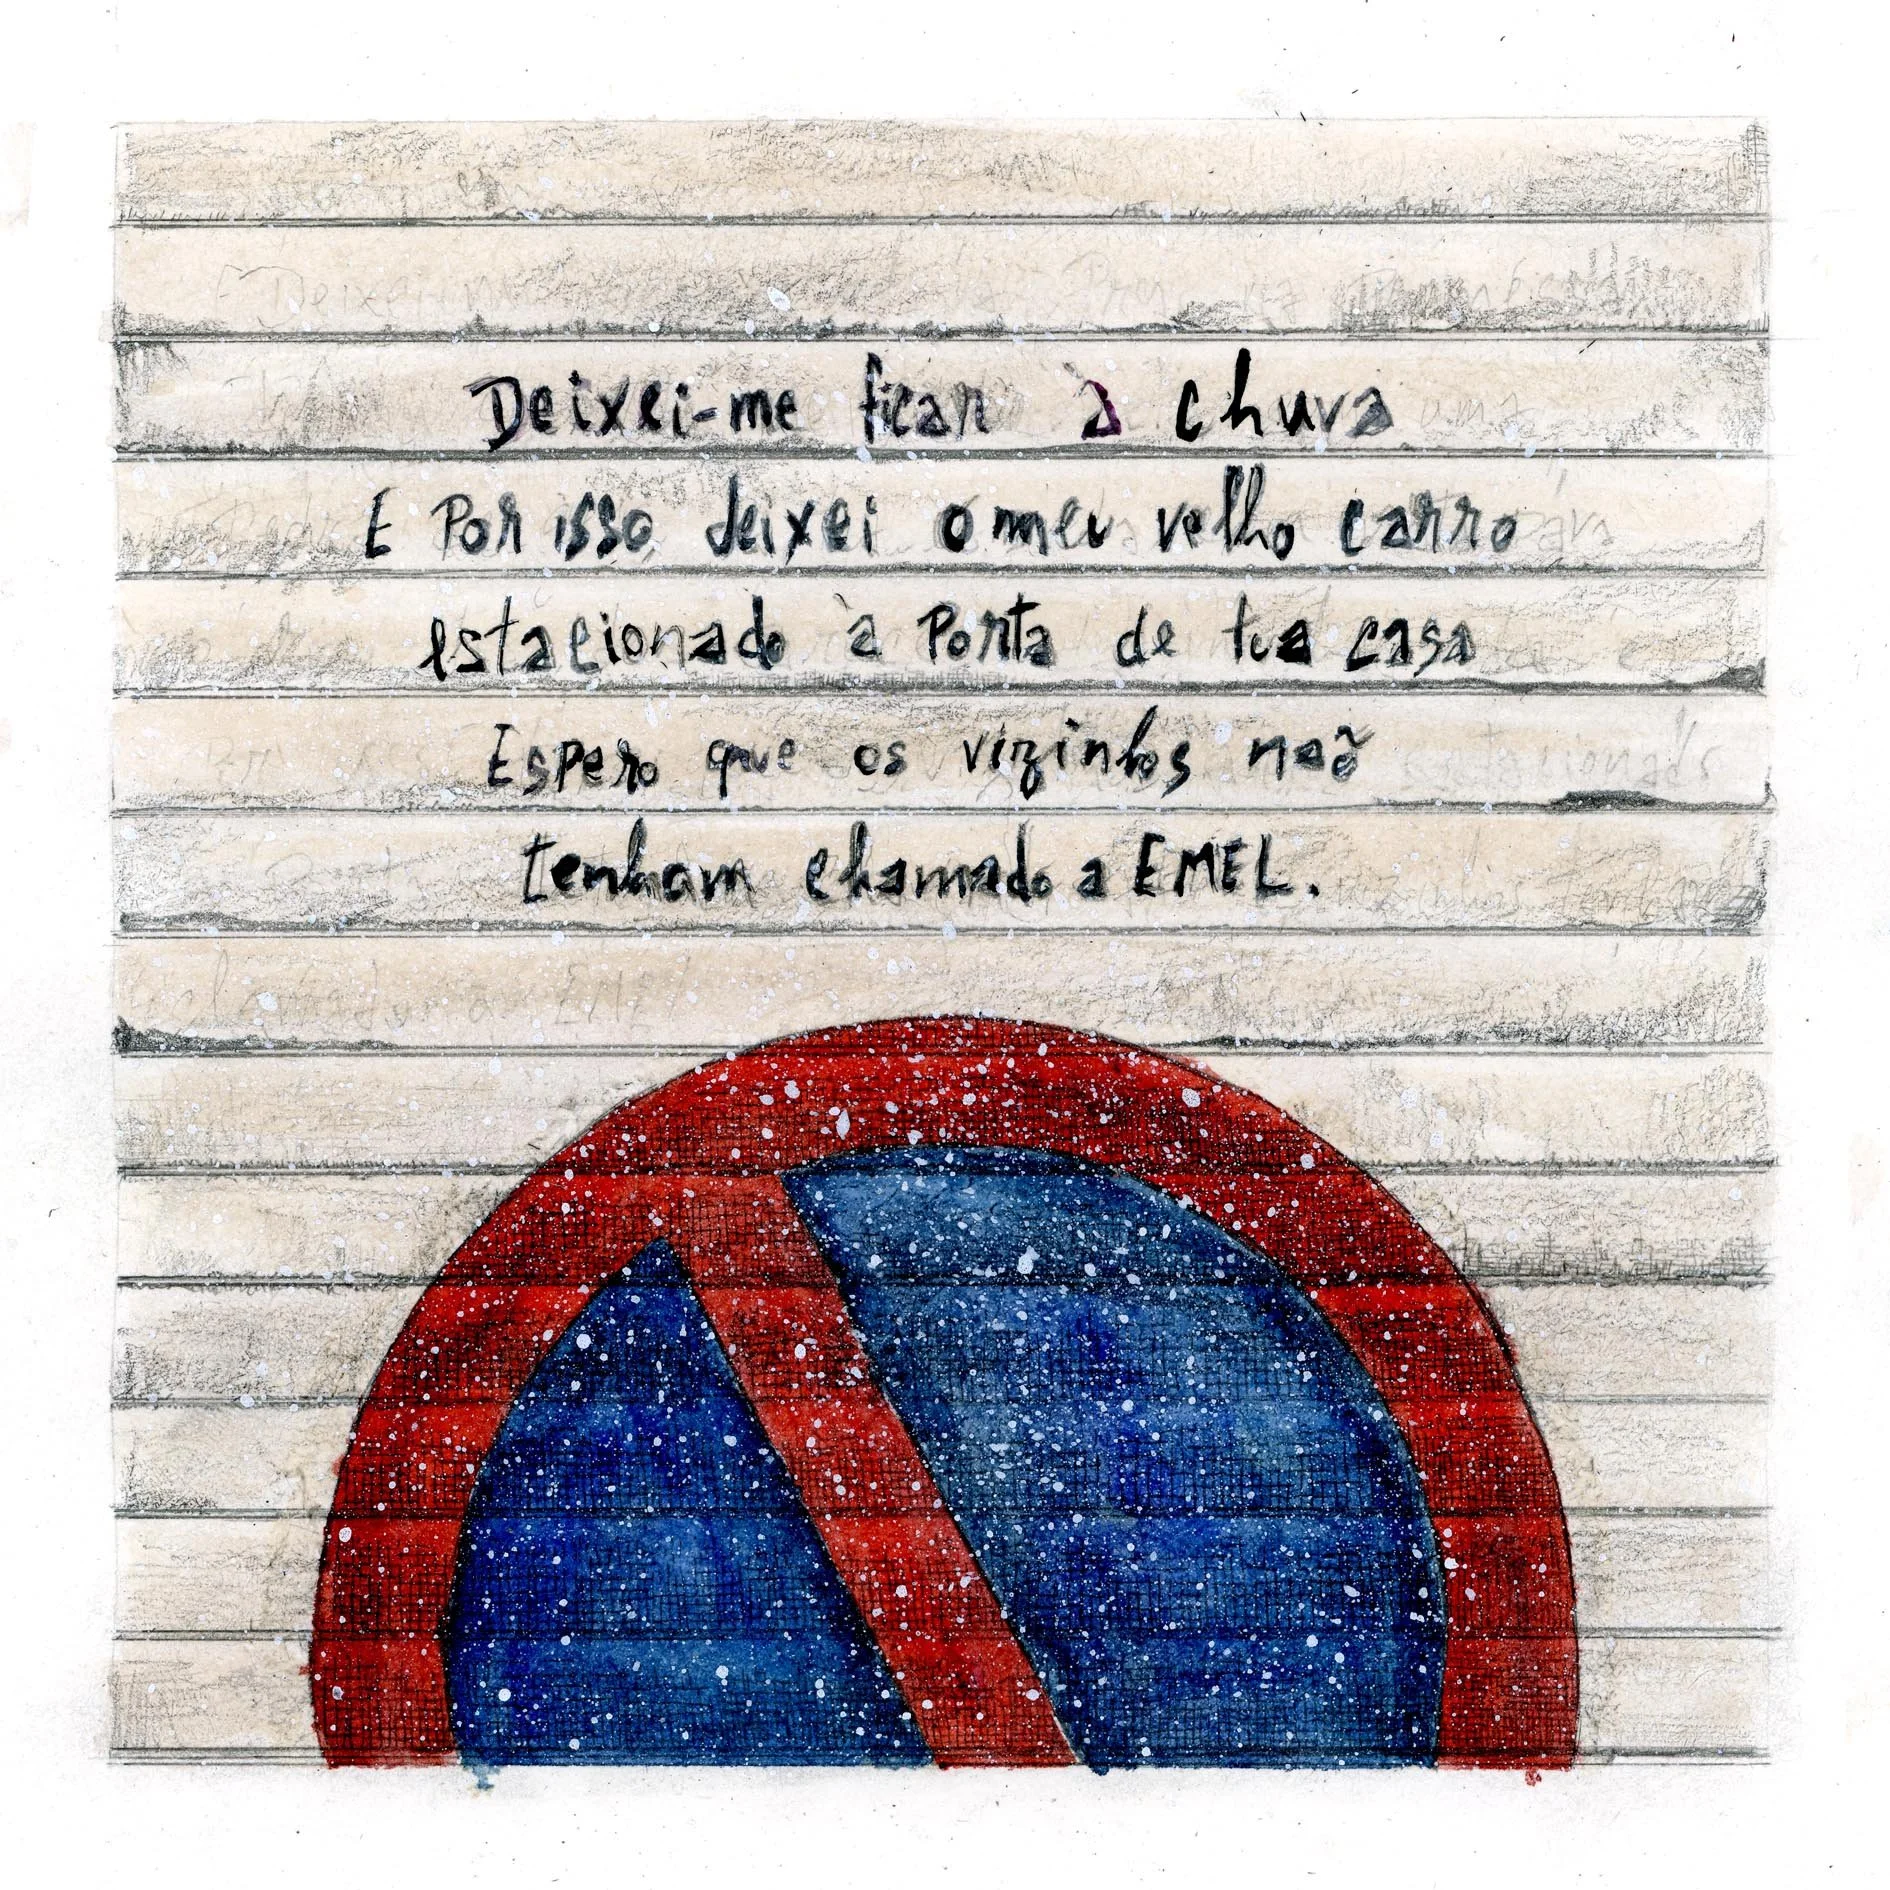 Deixei-me ficar à chuva
E Por isso deixei o meu velho carro
estacionado à Porta de tua casa
Espero que os vizinhos não
tenham chamado a EMEL.